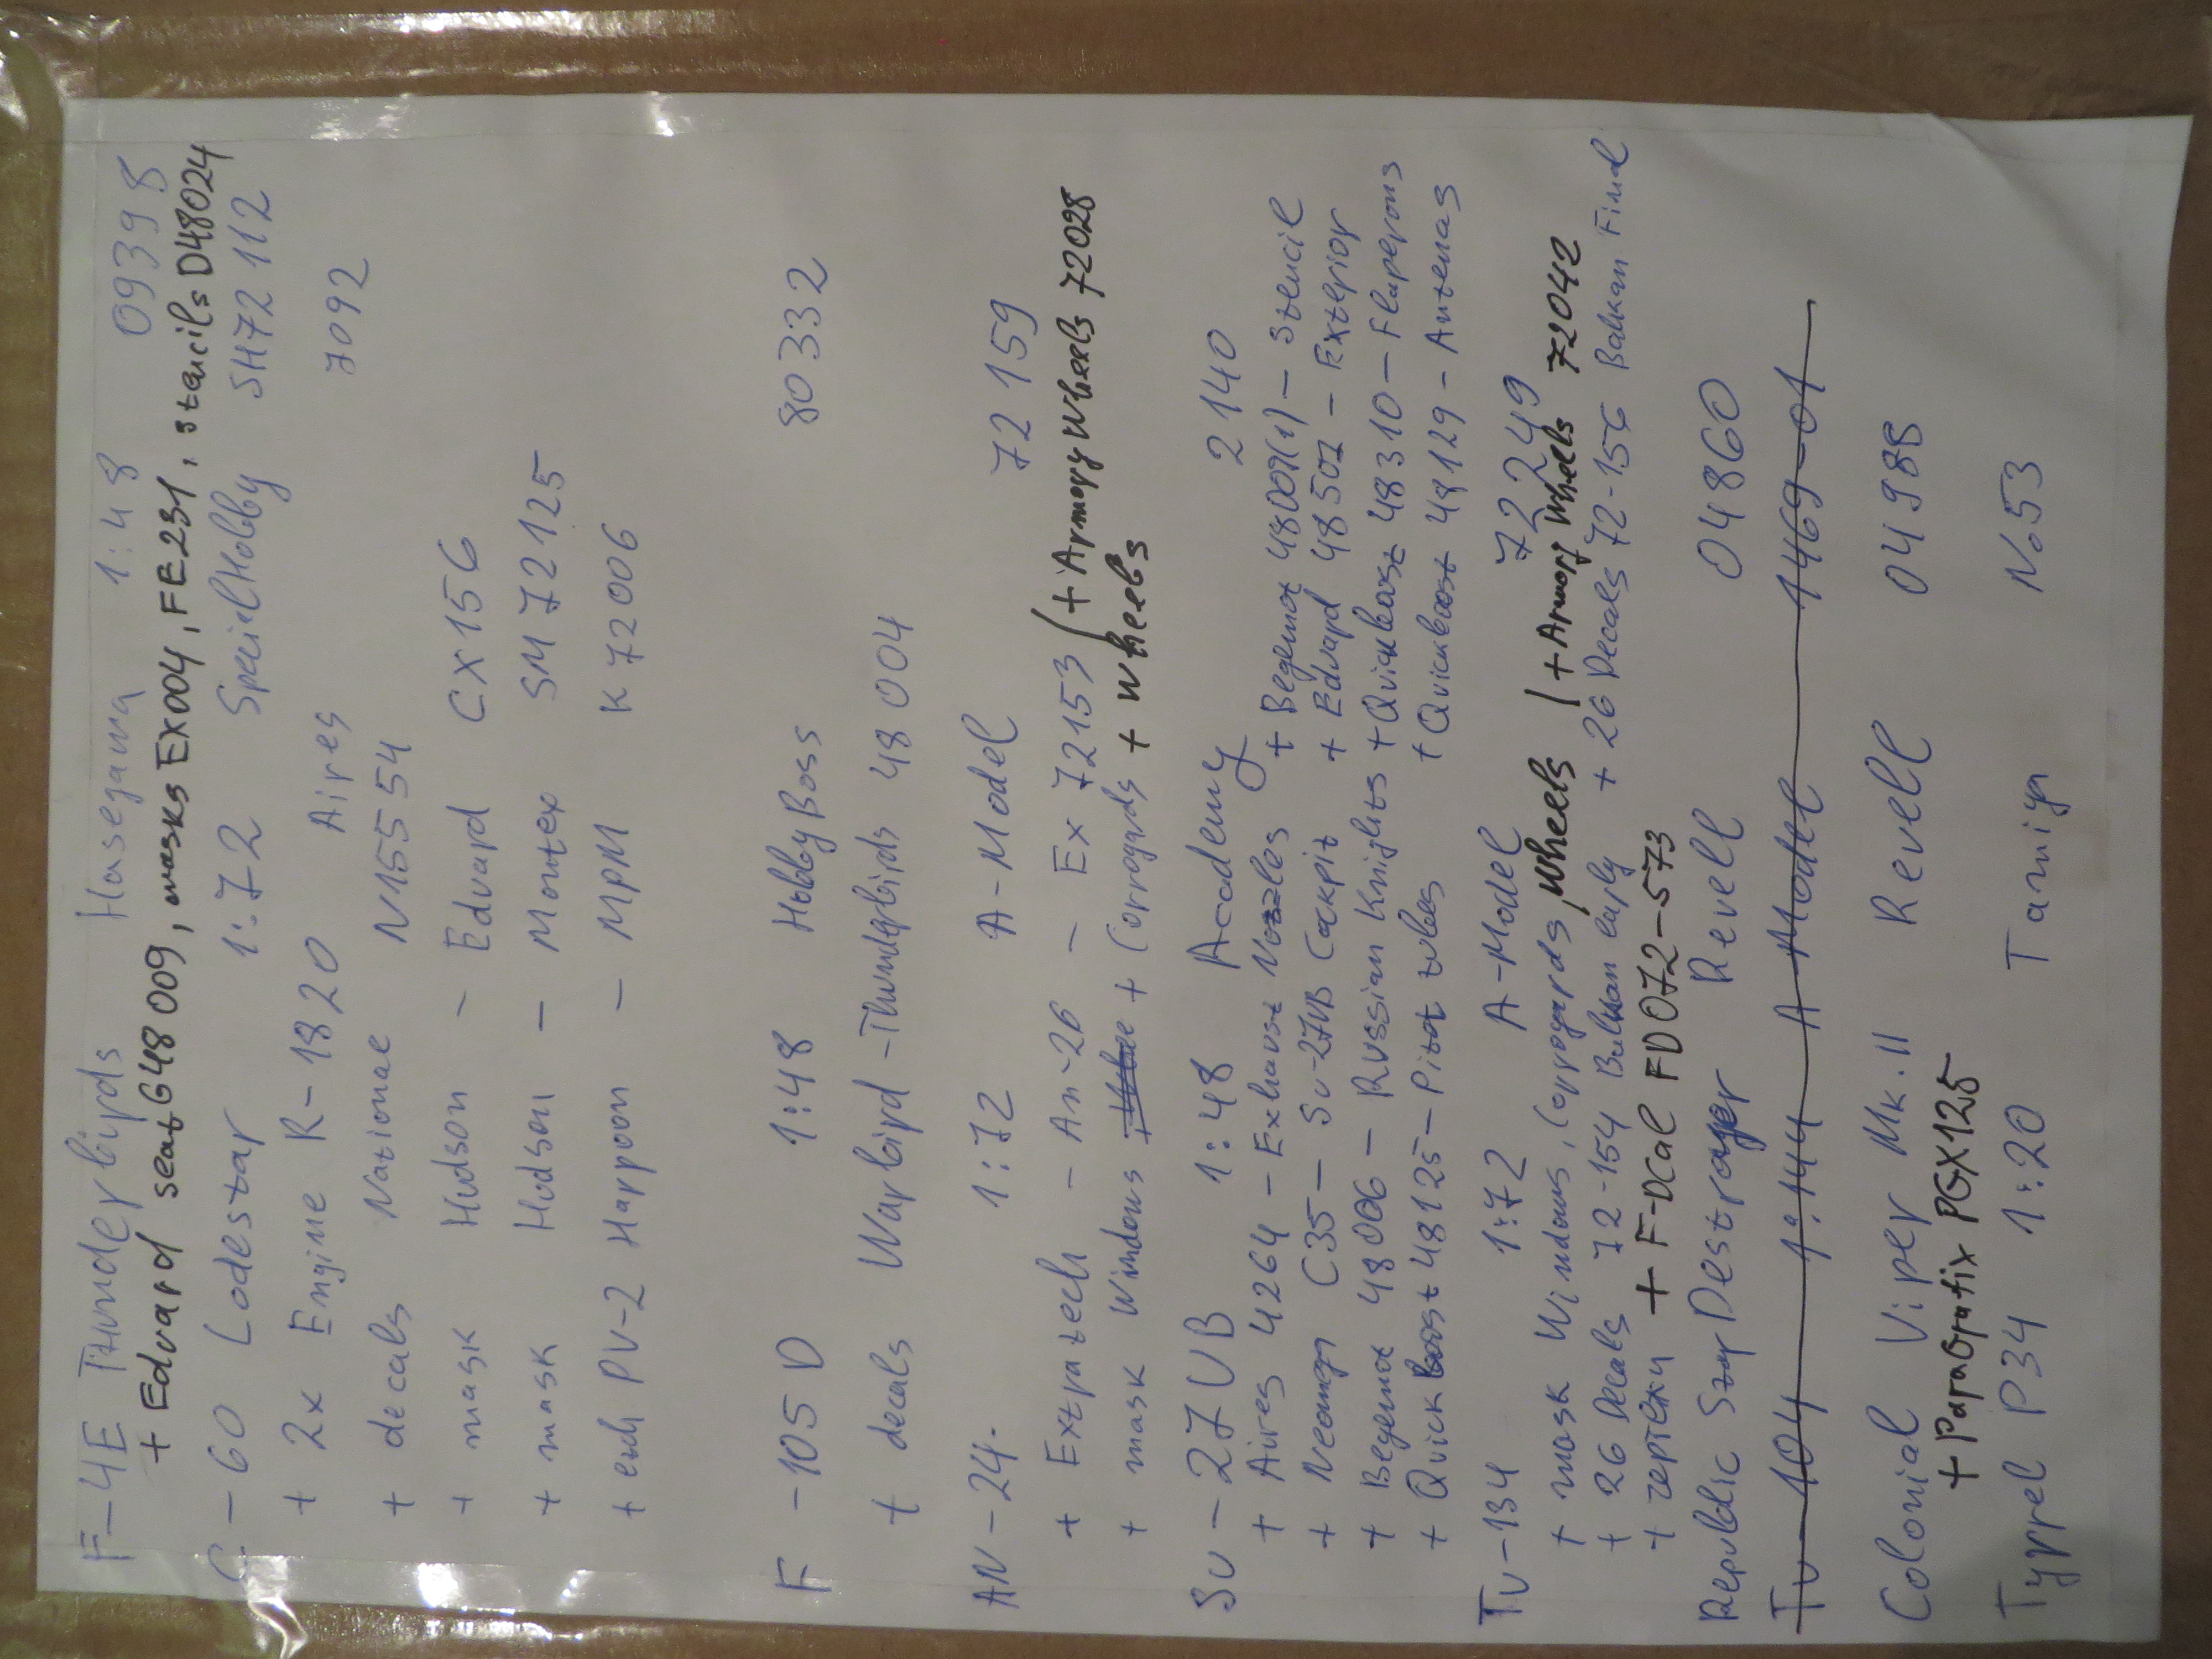 F-4E Thunderbirds Hasegawa 1:48 09398
+ Eduard seat 648 009, masks EX004, FE231, stencils D48024
C-60 Lodestar 1:72 SpecialHobby SH72112
+ 2x Engine R-1820 Aires 7092
+ decals Nationae N15554
+ mask Hudson - Eduard CX156
+ mask Hudson - Montex SM72125
+ exh PV-2 Harpoon - MPM K72006
F-105D 1:48 HobbyBoss 80332
+ decals Warbird - Thunderbirds 48004
AN-24 1:72 A-Model 72159
+ Extratech - An-26 - Ex 72153 (+ Armory Wheels 72028
+ mask Windows + Corrogards + wheels
Su-27UB 1:48 Academy 2140
+ Aires 4264 - Exhaust Nozzles + Begemot 48007(1) - Stencil
+ Neomega C35 - Su-27UB Cockpit + Eduard 48502 - Exterior
+ Begemot 48006 - Russian Knights + Quickboost 48310 - Flaperons
+ Quickboost 48125 - Pitot tubes + Quickboost 48129 - Antenas
Tu-134 1:72 A-Model 72249
+ mask Windows, Corrogards, wheels (+ Armory Wheels 72042
+ 26 Decals 72-154 Balkan early + 26 Decals 72-156 Balkan Final
+ F-DCal FD072-573
Republic Star Destroyer Revell 04860
Tu-104 1:144 A Model 1469-01
Colonial Viper Mk.II Revell 04988
+ Paragrafix PGX125
Tyrrel P34 1:20 Tamiya No53